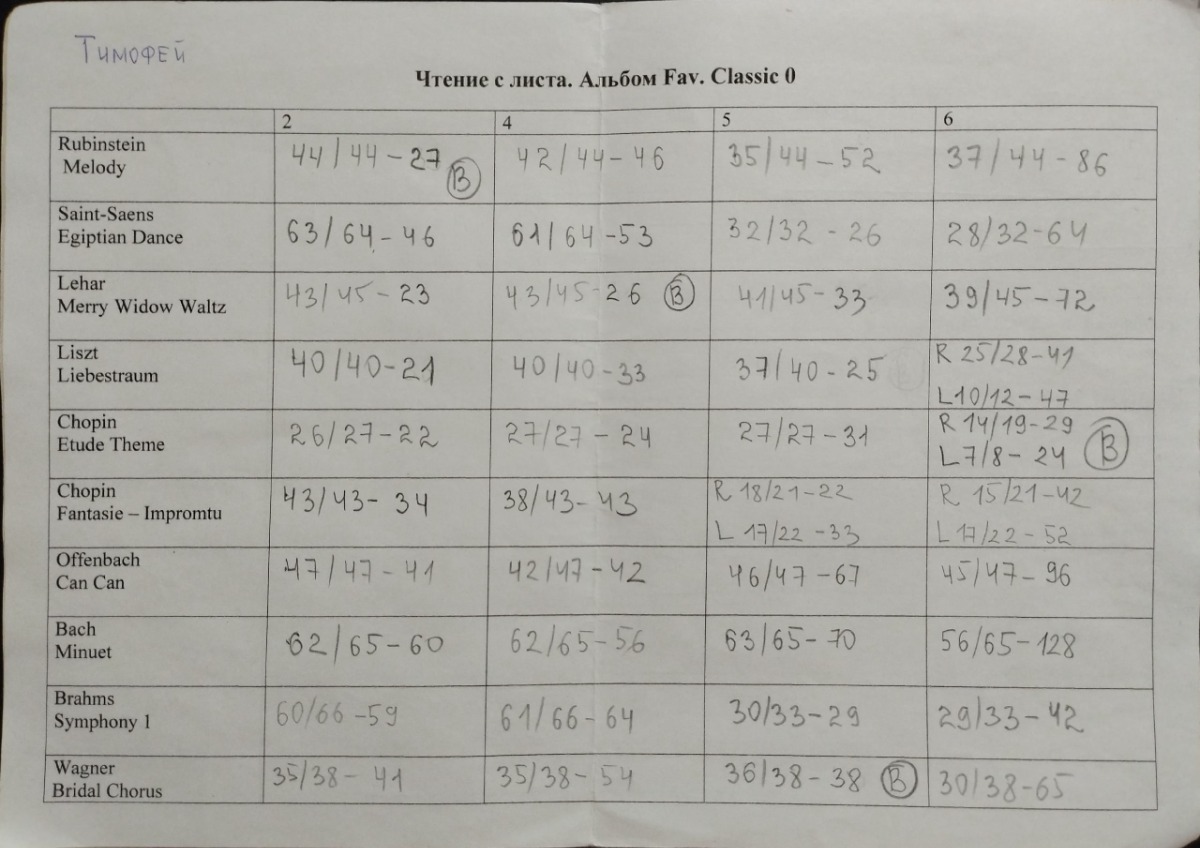 Тимофей
Чтение с листа. Альбом Fav. Classic 0
2 4 5 6
Rubinstein
Melody
44/44-27 B 42/44-46 35/44-52 37/44-86
Saint-Saens
Egiptian Dance
63/64-46 61/64-53 32/32-26 28/32-64
Lehar
Merry Widow Waltz
43/45-23 43/45-26 B 41/45-33 39/45-72
Liszt
Liebestraum
40/40-21 40/40-33 37/40-25 R 25/28-41
L10/12-47
Chopin
Etude Theme
26/27-22 27/27-24 27/27-31 R 14/19-29
L7/8-24 B
Chopin
Fantasie – Impromtu
43/43-34 38/43-43 R 18/21-22 R 15/21-42
L 17/22-33 L 17/22-52
Offenbach
Can Can
47/47-41 42/47-42 46/47-67 45/47-96
Bach
Minuet
62/65-60 62/65-56 63/65-70 56/65-128
Brahms
Symphony 1
60/66-59 61/66-64 30/33-29 29/33-42
Wagner
Bridal Chorus
35/38-41 35/38-54 36/38-38 B 30/38-65